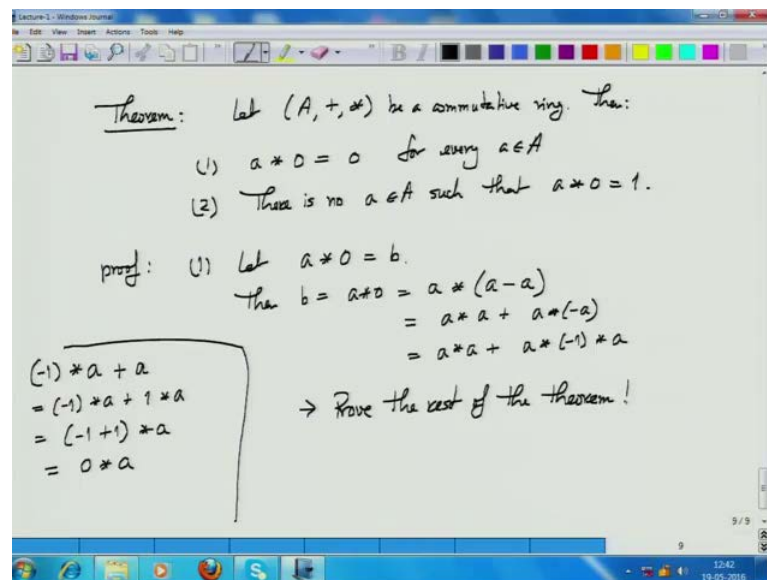 Lecture-1 - Windows Journal
Edit View Insert Actions Tools Help
Theorem: Let (A, +, *) be a commutative ring. Then:
(1) a * 0 = 0 for every a ∈ A
(2) There is no a ∈ A such that a * 0 = 1.
proof: (1) Let a * 0 = b.
Then b = a * 0 = a * (a - a)
= a * a + a * (-a)
= a * a + a * (-1) * a
(-1) * a + a
= (-1) * a + 1 * a
= (-1 + 1) * a
= 0 * a
→ Prove the rest of the theorem!
9 / 9
9
12:42
19-05-2016